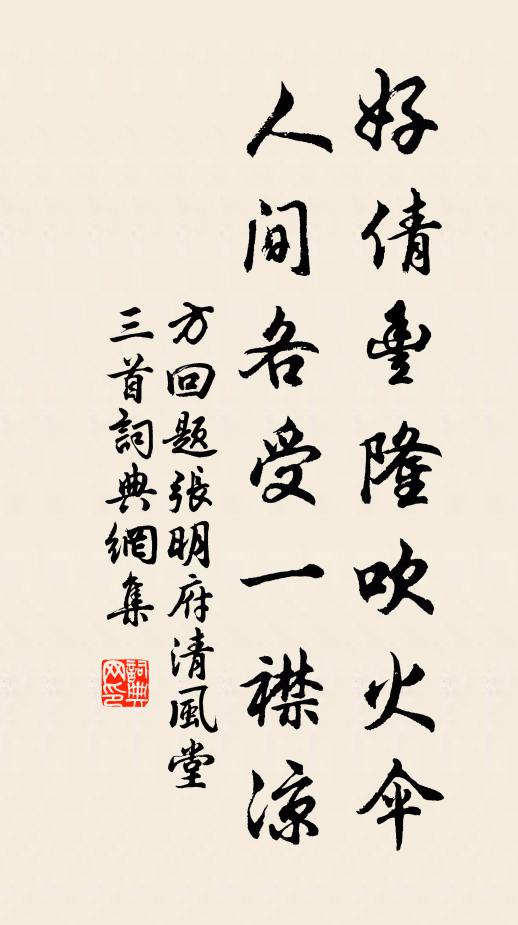 好倩豐隆吹火伞
人间各受一襟凉
方回题張明府清風堂
三首詞典網集
詞典网印